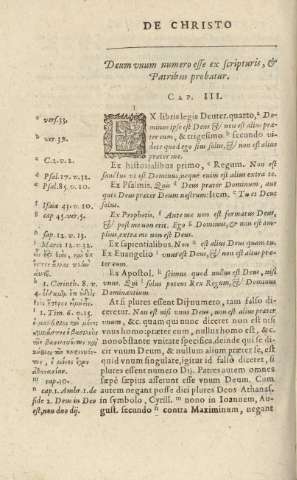 DE CHRISTO
Deum vnum numero esse ex scripturis, &
Patribus probatur.
CAP. III.
EX libris legis Deuter. quarto, Do-
minus ipse est Deus & non est alius præ-
ter eum, & trigesimo secundo vi-
dete quod ego sim solus, & non est alius
præter me.
Ex historialibus primo, Regum. Non est
sanctus vt est Dominus, neque enim est alius extra te.
Ex Psalmis. Quis Deus præter Dominum, aut
quis Deus præter Deum nostrum: Item. Tu es Deus
solus.
Ex Prophetis, Ante me non est formatus Deus,
& post me non erit. Ego Dominus, & non est am-
plius, extra me non est Deus.
Ex sapientialibus. Non est alius Deus quam tu.
Ex Euangelio vnus est Deus & non est alius
præter eum.
Ex Apostol. scimus quod nullus est Deus, nisi
vnus. Qui solus potens Rex Regum, & Dominus
Dominantium.
At si plures essent Dij numero, tam falso di-
ceretur. Non est nisi vnus Deus, non est alius præter
vnum, &c. quam qui nunc diceret non est nisi
vnus homo præter eum, nullus homo est, &c.
non obstante vnitate specifica, deinde qui se di-
cit vnum Deum, & nullum alium præter se, est
quid vnum singulare, igitur id falso diceret, si
plures essent numero Dij. Patres autem omnes
sæpè sæpius asserunt esse vnum Deum. Cum
autem negant posse dici plures Deos Athanas.
in symbolo, Cyrill. nono in Ioannem, Au-
gust. secundo contra Maximinum, negant
a vers. 35.
b ver. 39.
c C. 2. v. 2.
d Psal. 17. v. 32.
e Psal. 85. v. 10.
f Isaiæ 43. v. 10.
g cap 45. ver 5.
h sap. 12. v. 13.
i Marci 12. v. 32.
k 1. Corinth. 8. v.
l 1. Tim. 6. v. 15.
m cap 10.
n cap. 1. Ambr. 1. de
fide 2. Deus in Deo
est, non duo dij.